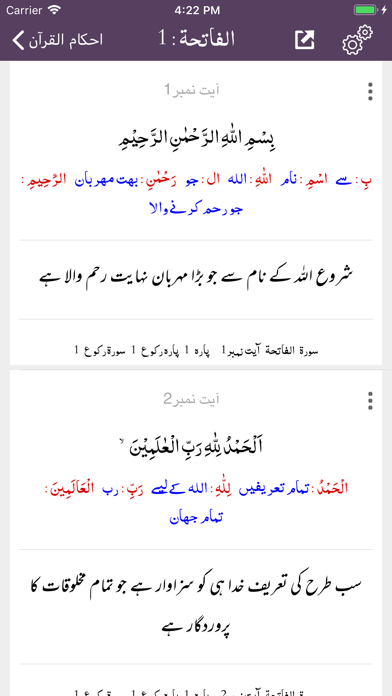 Carrier 4:22 PM
احکام القرآن الفاتحة : 1
آیت نمبر1
بِسْمِ اللهِ الرَّحْمٰنِ الرَّحِيْمِ
بِ: سے اسْمِ: نام اللهِ: الله ال: جو رَحْمٰنِ: بهت مهربان الرَّحِيمِ:
جو رحم کرنے والا
شروع اللہ کے نام سے جو بڑا مہربان نہایت رحم والا ہے
سورۃ الفاتحۃ آیت نمبر1 پارہ 1 پارہ رکوع 1 سورۃ رکوع 1
آیت نمبر2
اَلْحَمْدُ لِلّٰهِ رَبِّ الْعٰلَمِيْنَ ۙ
الْحَمْدُ: تمام تعریفیں لِلّٰهِ: الله کے لیے رَبِّ: رب الْعَالَمِينَ:
تمام جهان
سب طرح کی تعریف خدا ہی کو سزاوار ہے جو تمام مخلوقات کا
پروردگار ہے